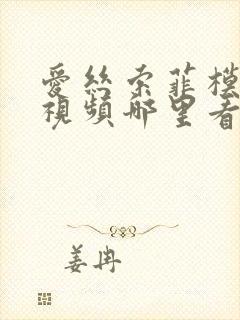 愛絲索菲櫻
視頻哪里看
姜冉